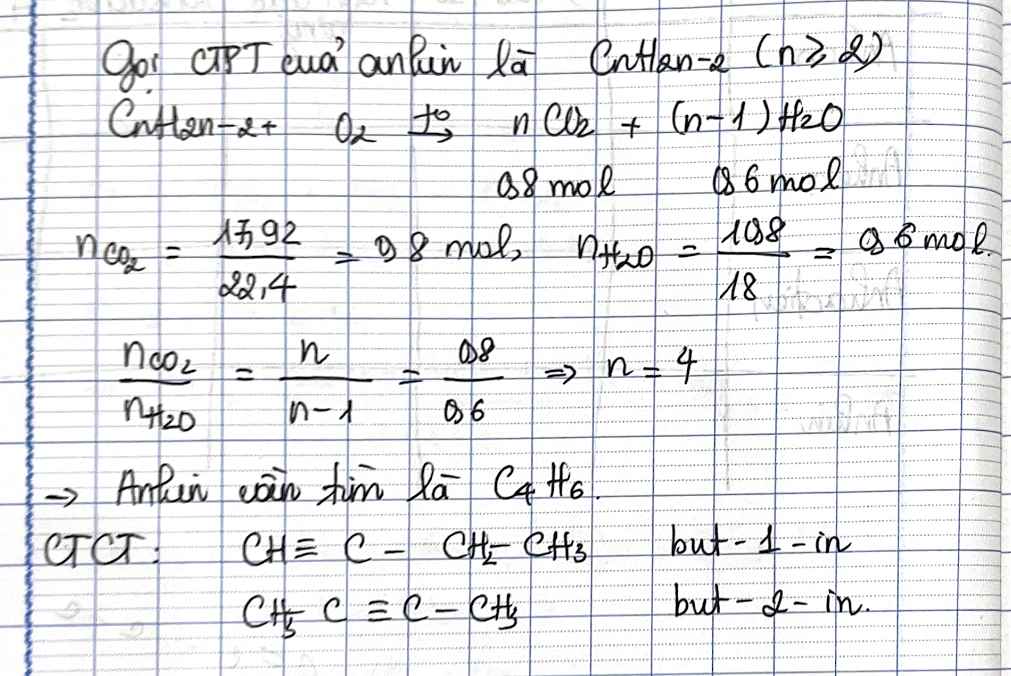 Gọi CTPT của ankin là CnH2n-2 (n ≥ 2)
CnH2n-2 + O2 →t° n CO2 + (n-1) H2O
0,8 mol 0,6 mol
nCO2 = 17,92/22,4 = 0,8 mol, nH2O = 10,8/18 = 0,6 mol.
nCO2/nH2O = n/n-1 = 0,8/0,6 => n = 4
→ Ankin cần tìm là C4H6.
CTCT: CH≡C-CH2-CH3 but-1-in
CH3-C≡C-CH3 but-2-in.